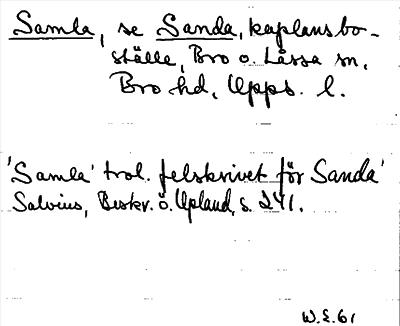 Samla, se Sanda, kaplansbo-
ställe, Bro o. Låssa sn,
Bro hd, Upps. l.
'Samla' trol. felskrivet för 'Sanda'
Salvius, Beskr. ö. Upland, s. 241.
W.E.61